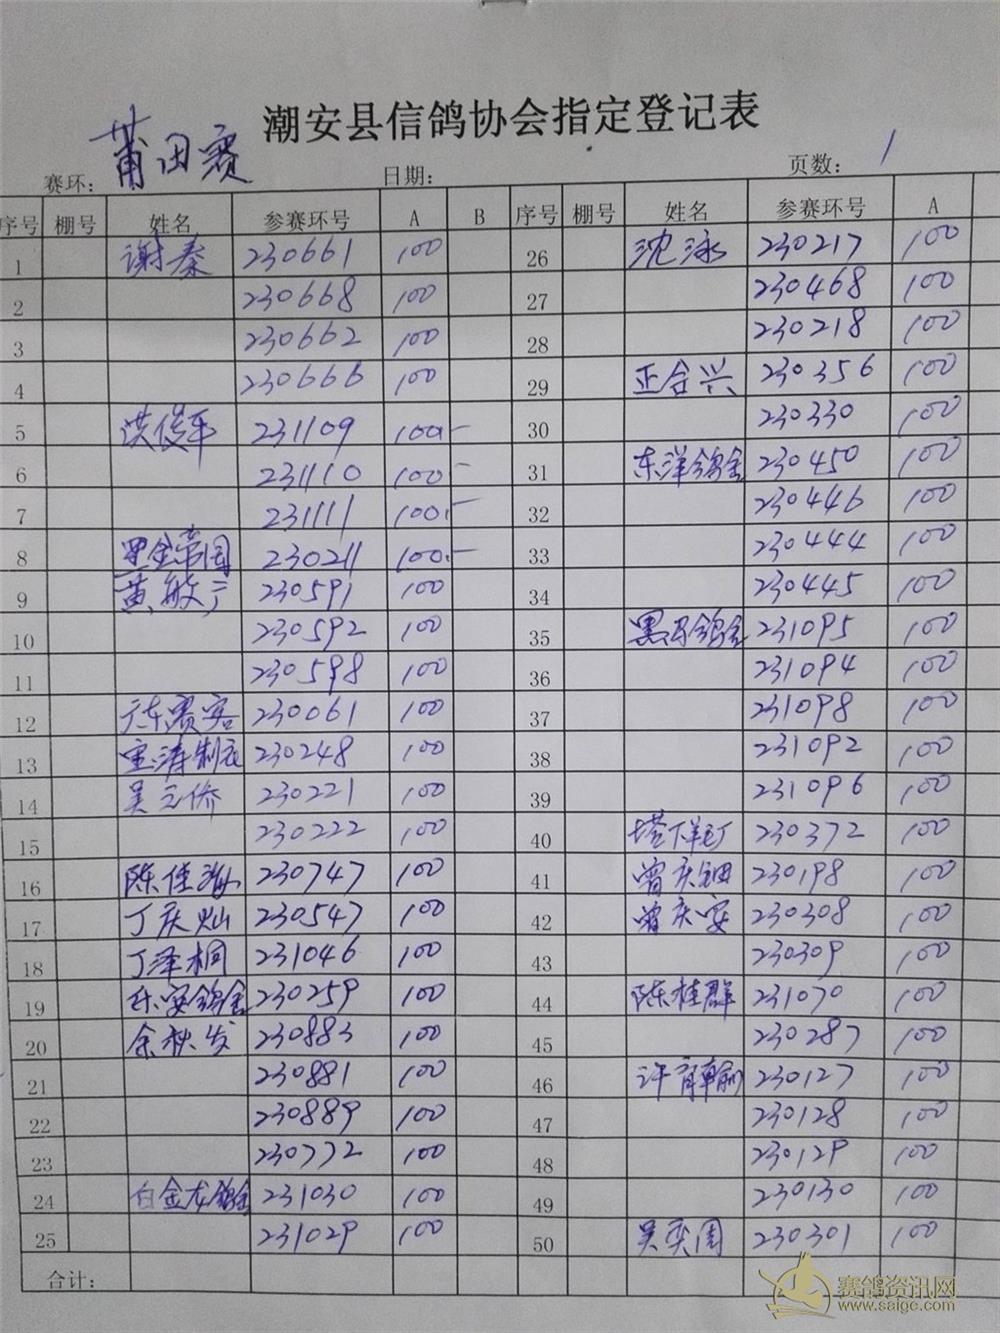 潮安县信鸽协会指定登记表
赛环: 莆田赛 日期: 页数: 1
序号 棚号 姓名 参赛环号 A B 序号 棚号 姓名 参赛环号 A
1 谢秦 230661 100 26 沈泳 230217 100
2 230668 100 27 230468 100
3 230662 100 28 230218 100
4 230666 100 29 正合兴 230356 100
5 洪俊平 231109 100.- 30 230330 100
6 231110 100.- 31 东洋鸽舍 230450 100
7 231111 100.- 32 230446 100
8 黑金帝国 230211 100.- 33 230444 100
9 黄敏 230591 100 34 230445 100
10 230592 100 35 黑马鸽舍 231095 100
11 230598 100 36 231094 100
12 广东赛客 230061 100 37 231098 100
13 宝涛制衣 230248 100 38 231092 100
14 吴元侨 230221 100 39 231096 100
15 230222 100 40 塔下 230372 100
16 陈佳 230747 100 41 曾庆钿 230198 100
17 丁庆灿 230547 100 42 曾庆安 230308 100
18 丁泽桐 231046 100 43 230309 100
19 安鸽舍 230259 100 44 陈桂群 231070 100
20 余秋发 230883 100 45 230287 100
21 230881 100 46 许育翰 230127 100
22 230889 100 47 230128 100
23 230772 100 48 230129 100
24 白金龙鸽舍 231030 100 49 230130 100
25 231029 100 50 吴奕周 230301 100
合计:
赛鸽资讯网
www.saige.com